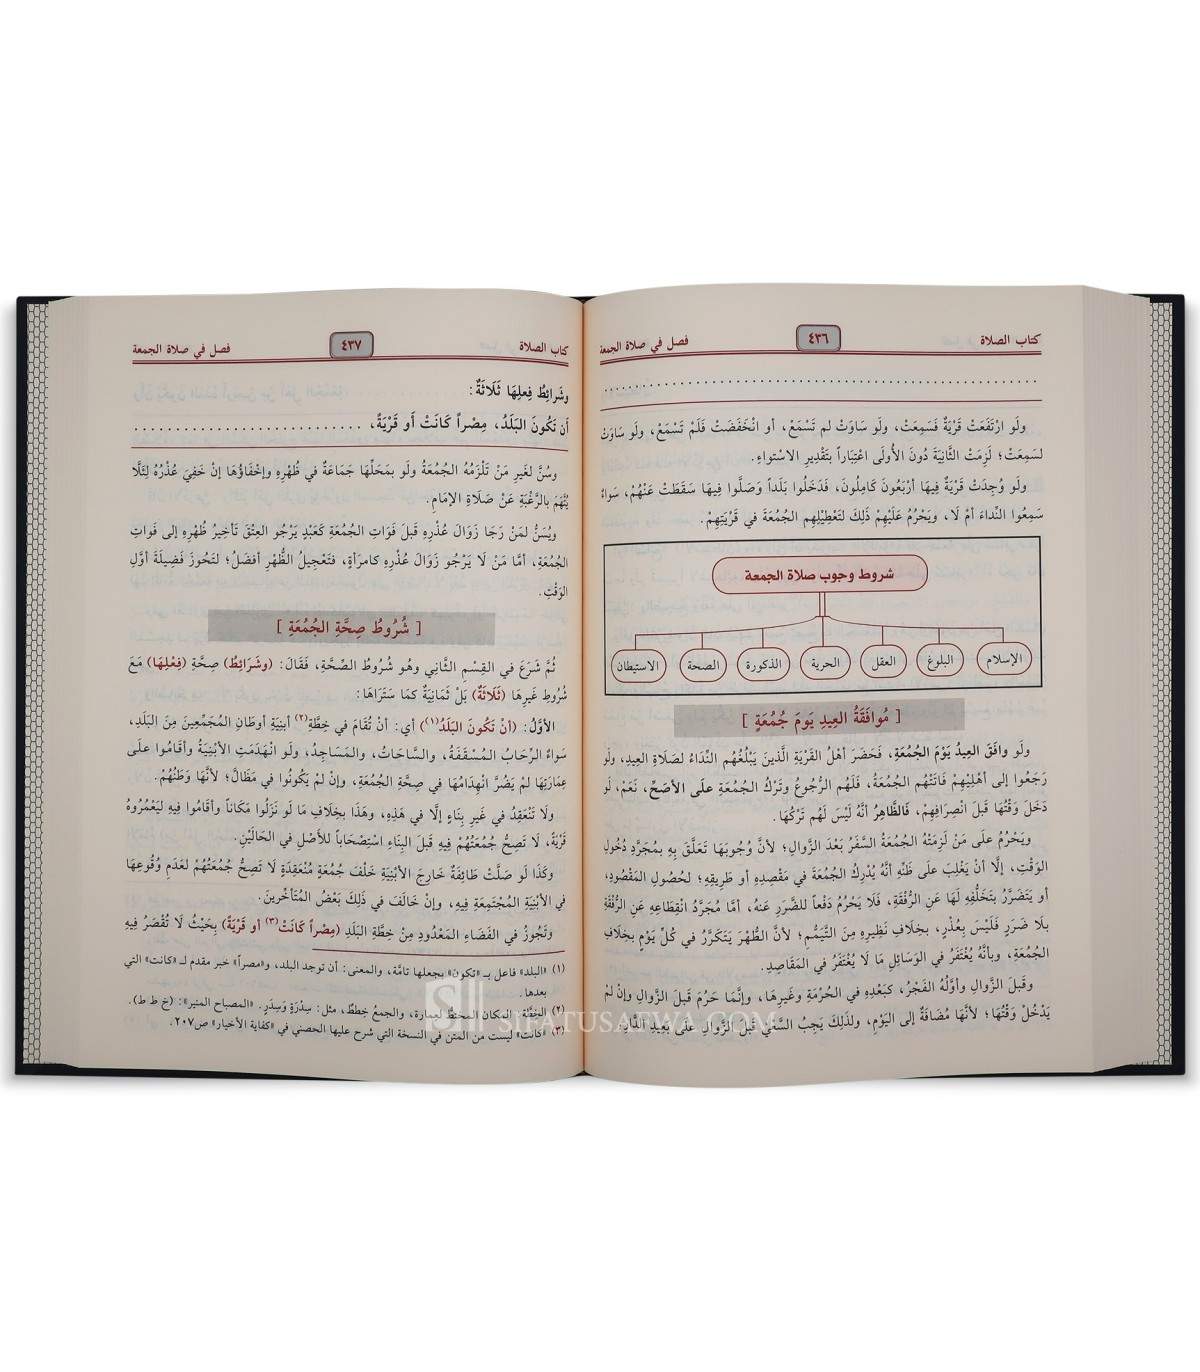 كتاب الصلاة
٤٣٦
فصل في صلاة الجمعة
ولَو ارْتَفَعَتْ قَرْيَةٌ فَسَمِعَتْ، ولَو سَاوَتْ لم تَسْمَعْ، أو انْخَفَضَتْ فَلَمْ تَسْمَعْ، ولَو سَاوَتْ
لسَمِعَتْ؛ لَزِمَتْ الثَّانِيَةَ دُونَ الأُولَى اعْتِبَاراً بتَقْدِيرِ الاسْتِواءِ.
ولَو وُجِدَتْ قَرْيَةٌ فِيهَا أرْبَعُونَ كَامِلُونَ، فَدَخَلُوا بَلَداً وَصَلَّوا فِيهَا سَقَطَتْ عَنْهُمْ، سَواءٌ
سَمِعُوا النِّداءَ أمْ لَا، ويَحْرُمُ عَلَيْهِمْ ذَلِكَ لتَعْطِيلِهِم الجُمُعَةَ في قَرْيَتِهِمْ.
شروط وجوب صلاة الجمعة
الإسلام
البلوغ
العقل
الحرية
الذكورة
الصحة
الاستيطان
[ مُوافَقَةُ العِيدِ يَومَ جُمُعَةٍ ]
ولَو وافَقَ العِيدُ يَوْمَ الجُمُعَةِ، فَحَضَرَ أهْلُ القَرْيَةِ الَّذِينَ يَبْلُغُهُم النِّدَاءُ لصَلَاةِ العِيدِ، ولَو
رَجَعُوا إلى أهْلِيْهِمْ فَاتَتْهُم الجُمُعَةُ، فَلَهُم الرُّجُوعُ وتَرْكُ الجُمُعَةِ علَى الأصَحِّ، نَعَمْ، لَو
دَخَلَ وَقْتُهَا قَبلَ انْصِرَافِهِمْ، فَالظَّاهِرُ أنَّهُ لَيْسَ لَهُم تَرْكُهَا.
ويَحْرُمُ علَى مَنْ لَزِمَتْهُ الجُمُعَةُ السَّفَرُ بَعْدَ الزَّوالِ؛ لأنَّ وُجُوبَهَا تَعَلَّقَ بِهِ بمُجَرَّدِ دُخُولِ
الوَقْتِ، إلَّا أنْ يَغْلِبَ علَى ظَنِّهِ أنَّهُ يُدْرِكُ الجُمُعَةَ في مَقْصِدِهِ أو طَرِيقِهِ؛ لحُصُولِ المَقْصُودِ،
أو يَتَضَرَّرُ بتَخَلُّفِهِ لَهَا عَنِ الرُّفْقَةِ، فَلَا يَحْرُمُ دَفْعاً للضَّرَرِ عَنهُ، أمَّا مُجَرَّدُ انْقِطَاعِهِ عَنِ الرُّفْقَةِ
بلَا ضَرَرٍ فَلَيْسَ بِعُذْرٍ، بخِلَافِ نَظِيرِهِ مِنَ التَّيَمُّمِ؛ لأنَّ الظُّهْرَ يَتَكَرَّرُ في كُلِّ يَوْمٍ بخِلَافِ
الجُمُعَةِ، وبأنَّهُ يُغْتَفَرُ في الوَسَائِلِ مَا لَا يُغْتَفَرُ في المَقَاصِدِ.
وقَبلَ الزَّوالِ وأوَّلُهُ الفَجْرُ، كبَعْدِهِ في الحُرْمَةِ وغَيرِهَا، وإنَّمَا حَرُمَ قَبلَ الزَّوالِ وإنْ لمْ
يَدْخُلْ وَقْتُهَا؛ لأنَّهَا مُضَافَةٌ إلى اليَوْمِ، ولذَلِكَ يَجِبُ السَّعْيُ قَبلَ الزَّوالِ علَى بَعِيدِ الدَّارِ.
كتاب الصلاة
٤٣٧
فصل في صلاة الجمعة
وشَرائِطُ فِعلِهَا ثَلَاثَةٌ:
أن تَكُونَ البَلَدُ، مِصْراً كَانَتْ أو قَرْيَةً،
وسُنَّ لغَيرِ مَنْ تَلْزَمُهُ الجُمُعَةُ ولَو بمَحَلِّهَا جَمَاعَةٌ في ظُهْرِهِ وإخْفَاؤُهَا إنْ خَفِيَ عُذْرُهُ لِئَلَّا
يُتَّهَمَ بالرَّغْبَةِ عَنْ صَلَاةِ الإمَامِ.
ويُسَنُّ لمَنْ رَجَا زَوَالَ عُذْرِهِ قَبلَ فَوَاتِ الجُمُعَةِ كَعَبْدٍ يَرْجُو العِتْقَ تَأخِيرُ ظُهْرِهِ إلى فَواتِ
الجُمُعَةِ، أمَّا مَنْ لَا يَرْجُو زَوَالَ عُذْرِهِ كامرَأةٍ، فتَعْجِيلُ الظُّهْرِ أفضَلُ؛ لتَحُوزَ فَضِيلَةَ أوَّلِ
الوَقْتِ.
[ شُرُوطُ صِحَّةِ الجُمُعَةِ ]
ثُمَّ شَرَعَ في القِسْمِ الثَّانِي وهُو شُرُوطُ الصِّحَّةِ، فَقَالَ: (وشَرَائِطُ) صِحَّةِ (فِعْلِهَا) مَعَ
شُرُوطِ غَيرِهَا (ثَلَاثَةٌ) بَلْ ثَمَانِيَةٌ كمَا سَتَرَاهَا:
الأوَّلُ: (أنْ تَكُونَ البَلَدُ(١)) أي: أنْ تُقَامَ في خِطَّةِ(٢) أبنِيَةِ أوطَانِ المُجَمِّعِينَ مِنَ البَلَدِ،
سَواءٌ الرِّحَابُ المُسَقَّفَةُ، والسَّاحَاتُ، والمَسَاجِدُ، ولَو انْهَدَمَتِ الأبْنِيَةُ وأقَامُوا علَى
عِمَارَتِهَا لمْ يَضُرَّ انْهِدَامُهَا في صِحَّةِ الجُمُعَةِ، وإنْ لمْ يَكُونُوا في مَظَالَّ؛ لأنَّهَا وَطَنُهُمْ.
ولَا تَنْعَقِدُ في غَيرِ بِنَاءٍ إلَّا في هَذِهِ، وهَذَا بخِلَافِ مَا لَو نَزَلُوا مَكَاناً وأقَامُوا فِيهِ ليَعْمُرُوهُ
قَرْيَةً، لَا تَصِحُّ جُمُعَتُهُمْ فِيهِ قَبلَ البِنَاءِ اسْتِصْحَاباً للأصْلِ في الحَالَيْنِ.
وكَذَا لَو صَلَّتْ طَائِفَةٌ خَارِجَ الأبْنِيَةِ خَلْفَ جُمُعَةٍ مُنْعَقِدَةٍ لَا تَصِحُّ جُمُعَتُهُمْ لعَدَمِ وُقُوعِهَا
في الأبْنِيَةِ المُجْتَمِعَةِ فِيهِ، وإنْ خَالَفَ في ذَلِكَ بَعْضُ المُتَأخِّرِينَ.
وتَجُوزُ في الفَضَاءِ المَعْدُودِ مِنْ خِطَّةِ البَلَدِ (مِصْراً كَانَتْ(٣) أو قَرْيَةً) بِحَيْثُ لَا تُقْصَرُ فِيهِ
(١) «البلد» فاعل بـ «تكون» بجعلها تامَّة، والمعنى: أن توجد البلد، و«مصراً» خبر مقدم لـ «كانت» التي
بعدها.
(٢) الخِطَّة: المكان المختطُّ لعمارة، والجمعُ خِطط، مثل: سِدْرَة وَسِدَرٍ. «المصباح المنير»: (خ ط ط).
(٣) «كانت» ليست من المتن في النسخة التي شرح عليها الحصني في «كفاية الأخيار» ص٢٠٧.
SIFATUSAFWA.COM